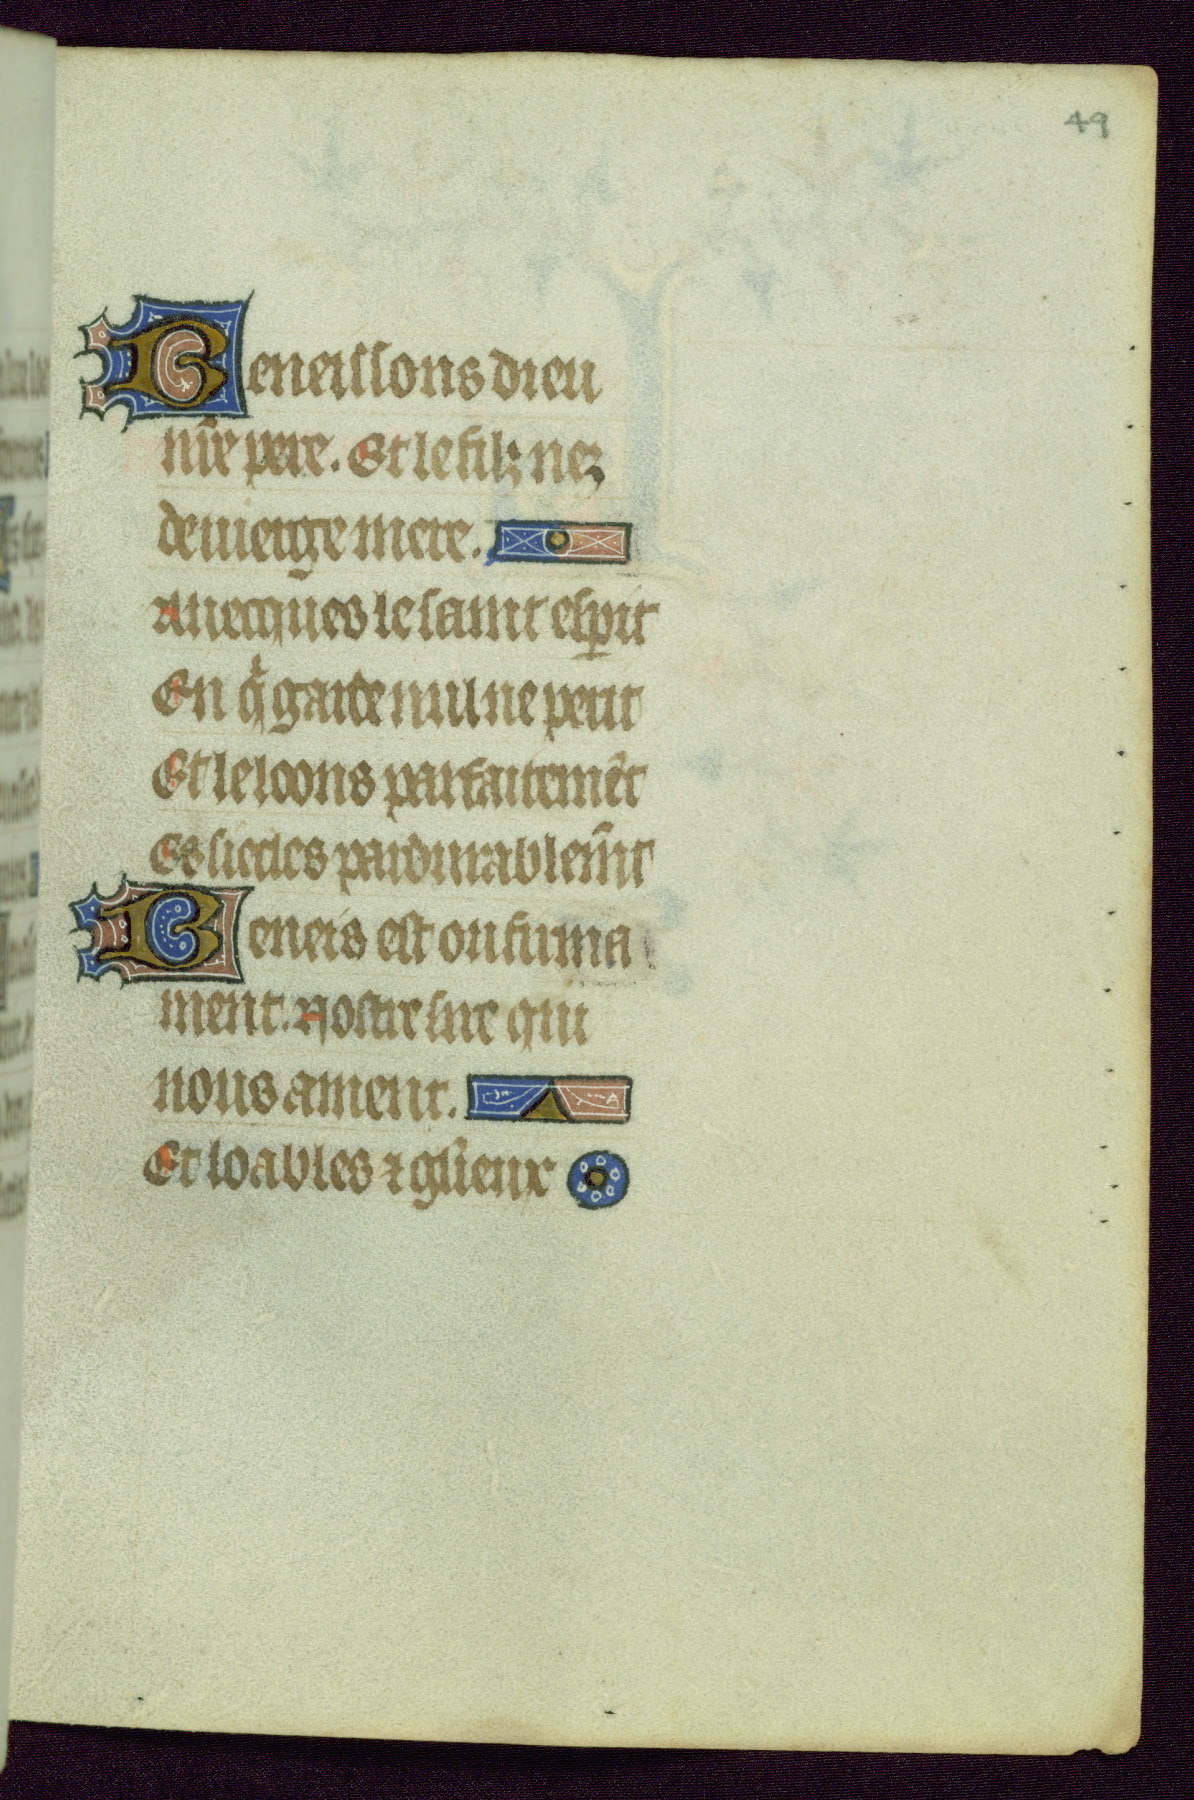 49
Beneissons dieu
nr̃e pere. Et le filz nez
de uierge mere.
Auecques le saint esp̲it
En q̉ garde nul ne perit
Et le loons parfaitemẽt
Es siecles pardurablem̃t
Beneis est ou firma
ment. Nostre sire qui
nous ament.
Et loables ⁊ gl̃ieux